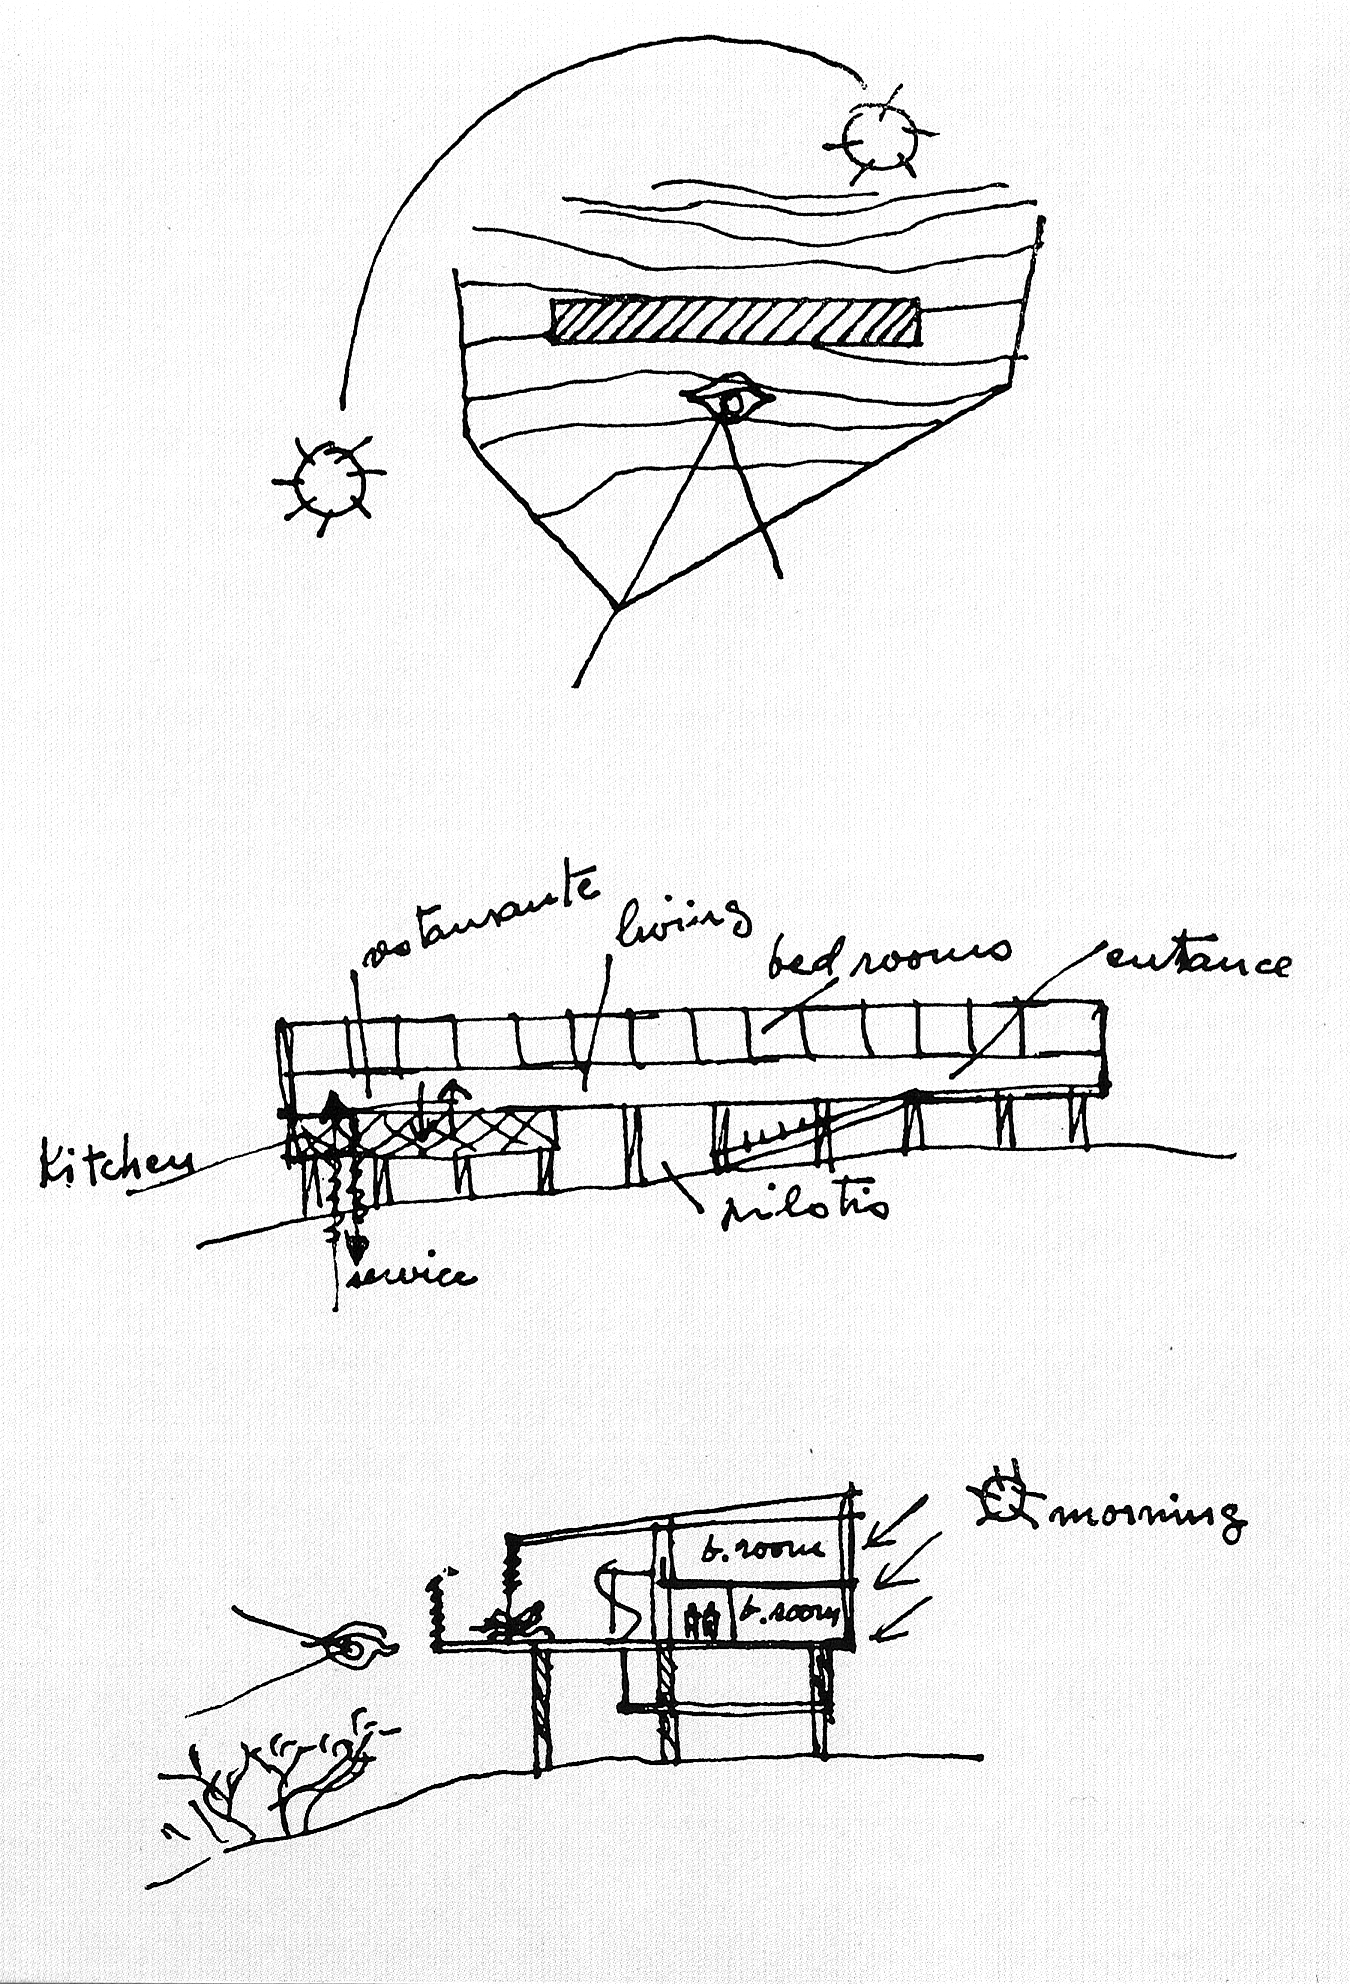 restaurante
living
bed rooms
entrance
Kitchen
pilotis
service
morning
b. room
b. room